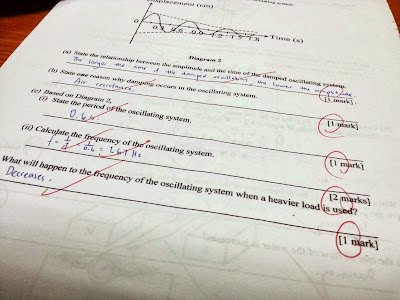 placement (cm)
oscillating system.
0
0.3 0.6 0.9 1.2 1.5 1.8
Time (s)
Diagram 2
(a) State the relationship between the amplitude and the time of the damped oscillating system.
The longer the time of the damped oscillation, the lower the amplitude.
[1 mark]
(b) State one reason why damping occurs in the oscillating system.
Air resistance.
[1 mark]
(c) Based on Diagram 2,
(i) State the period of oscillating system.
0.6 s
[1 mark]
(ii) Calculate the frequency of the oscillating system.
f = 1/T = 1/0.6 = 1.67 Hz
[2 marks]
What will happen to the frequency of the oscillating system when a heavier load is used?
Decreases.
[1 mark]